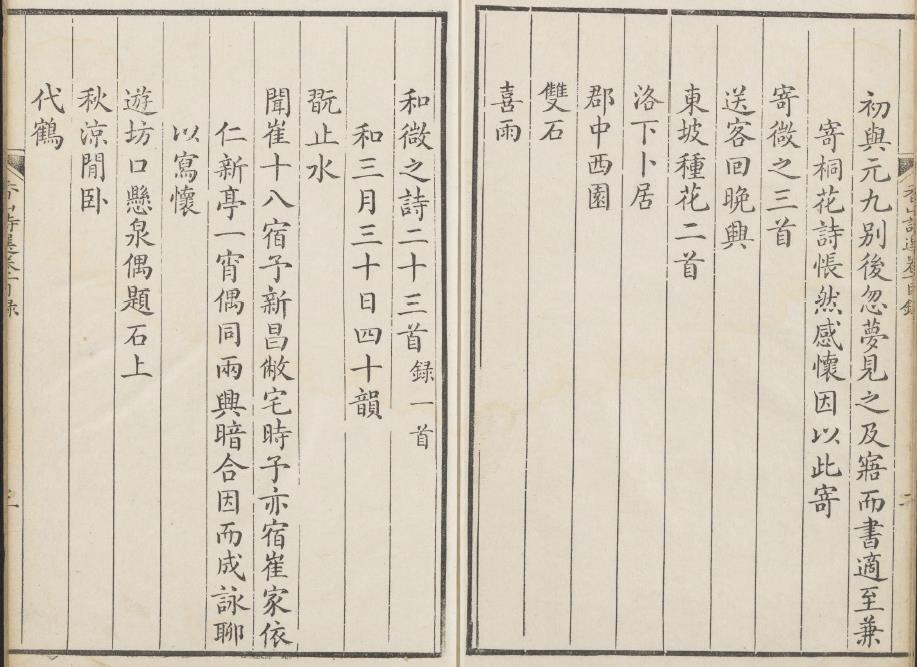 初與元九別後忽夢見之及寤而書適至兼
寄桐花詩悵然感懷因以此寄
寄微之三首
送客回晚興
東坡種花二首
洛下卜居
郡中西園
雙石
喜雨
和微之詩二十三首錄一首
和三月三十日四十韻
翫止水
聞崔十八宿予新昌敝宅時予亦宿崔家依
仁新亭一宵偶同兩興暗合因而成詠聊
以寫懷
遊坊口懸泉偶題石上
秋涼閒臥
代鶴